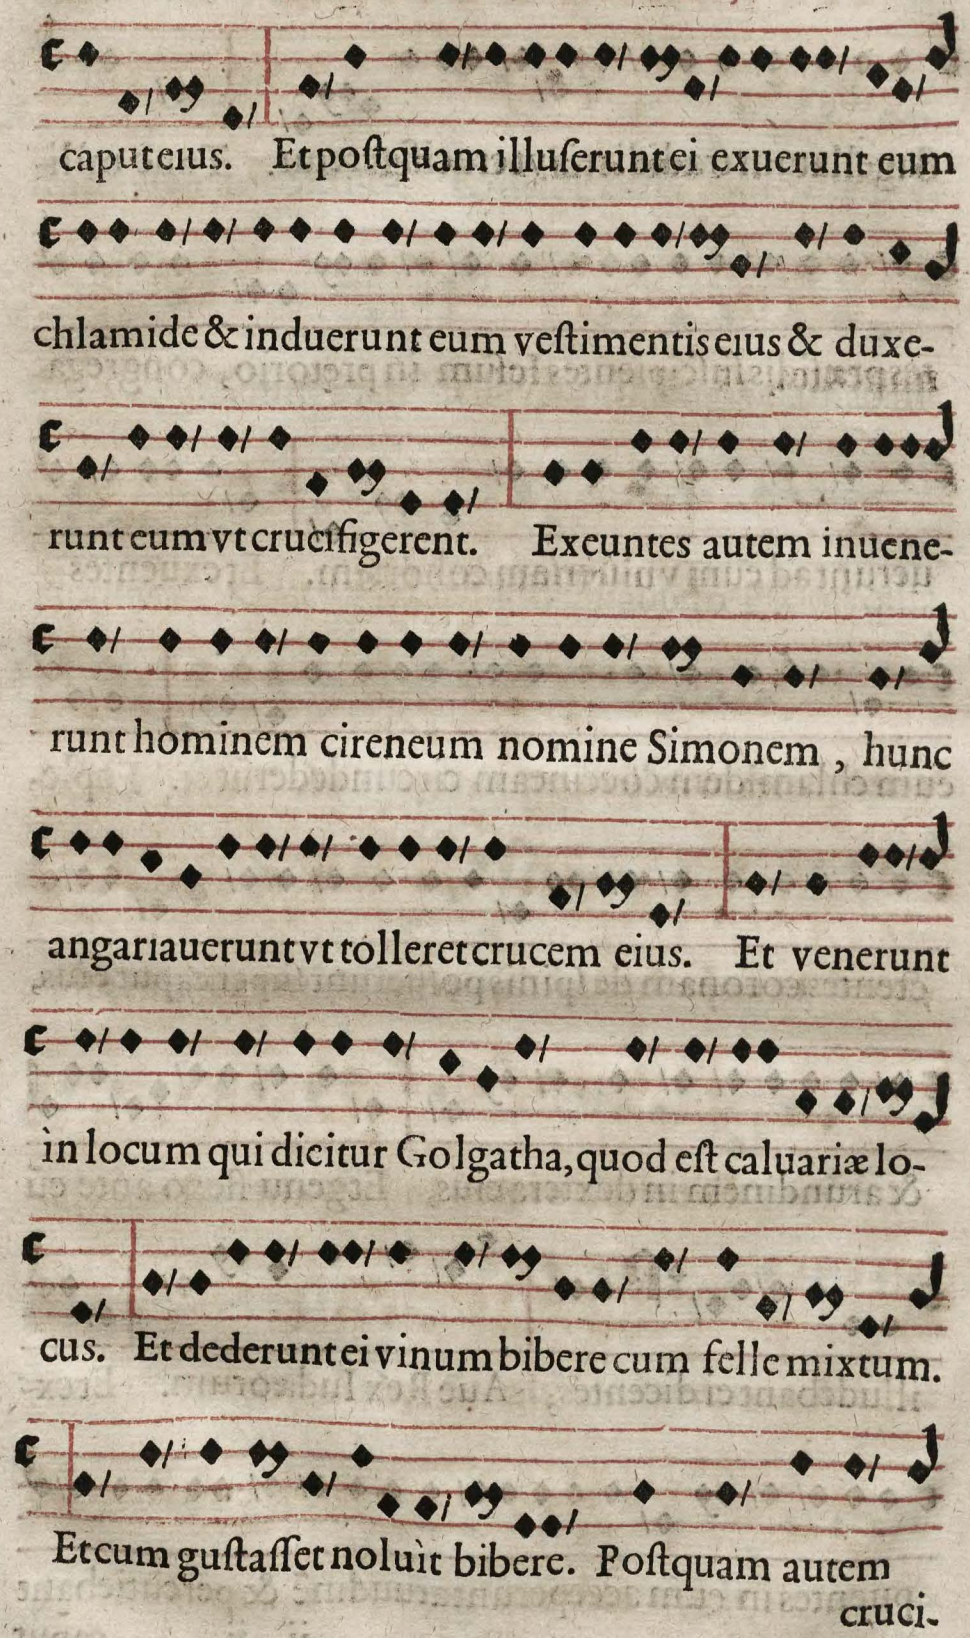 caput eius. Et postquam illuserunt ei exuerunt eum
chlamide & induerunt eum vestimentis eius & duxe-
runt eum vt crucifigerent. Exeuntes autem inuene-
runt hominem cireneum nomine Simonem , hunc
angariauerunt vt tolleret crucem eius. Et venerunt
in locum qui dicitur Golgatha, quod est caluariæ lo-
cus. Et dederunt ei vinum bibere cum felle mixtum.
Et cum gustasset noluìt bibere. Postquam autem
cruci-